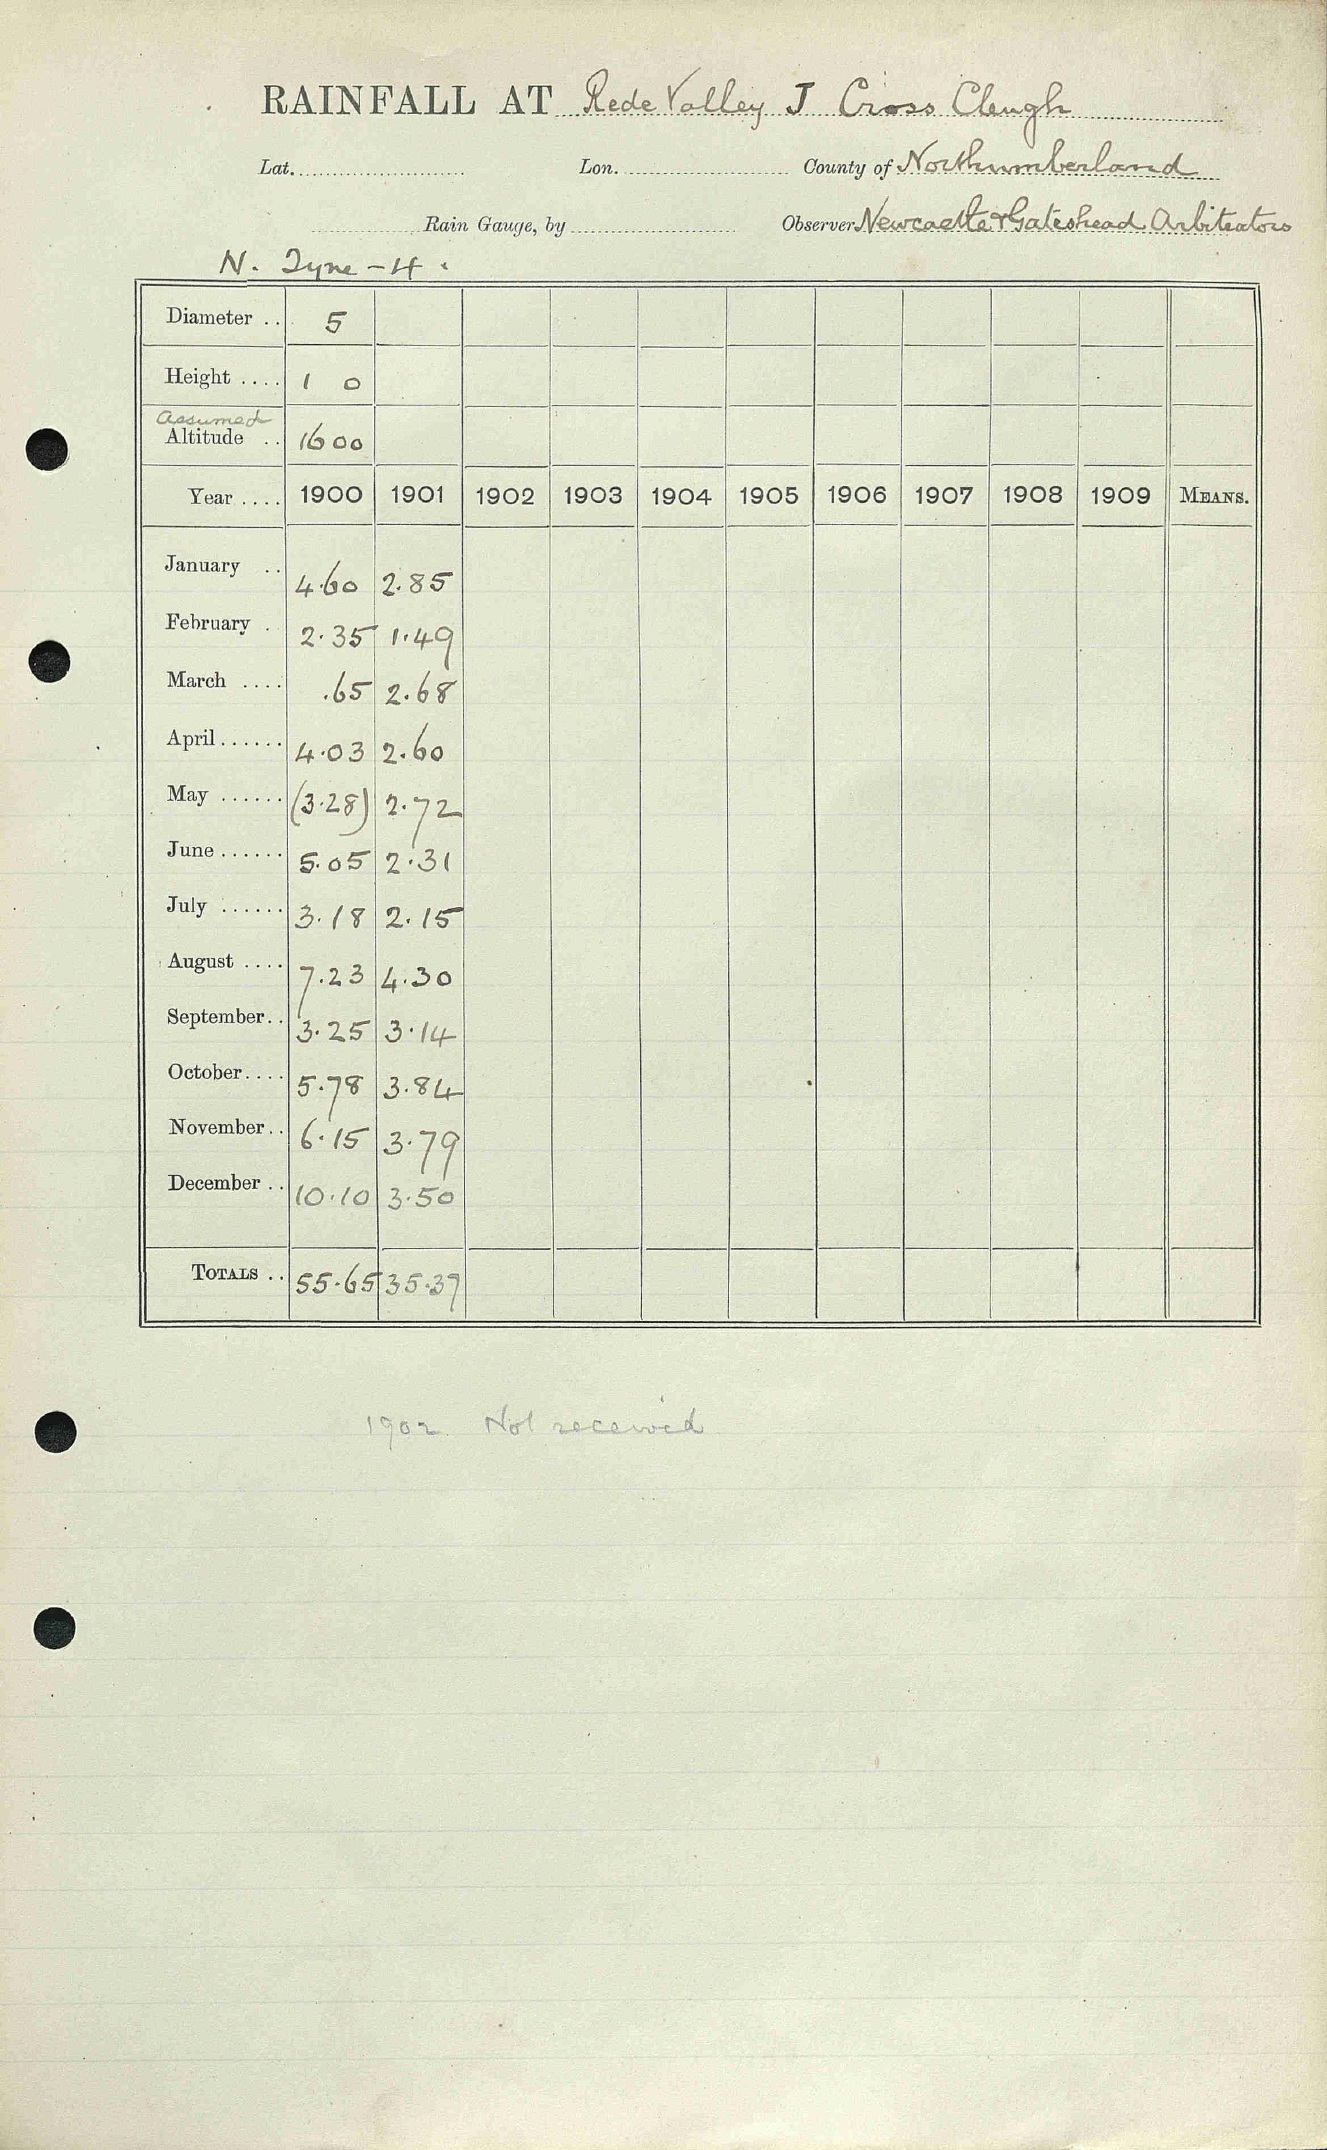 RAINFALL AT Rede Valley J Cross Cleugh
Lat. Lon. County of Northumberland
Rain Gauge, by Observer Newcastle & Gateshead Arbitrators
N. Tyne - 4.
Diameter .. 5
Height .... 1 0
Assumed
Altitude .. 1600
Year .... 1900 1901 1902 1903 1904 1905 1906 1907 1908 1909 MEANS.
January .. 4.60 2.85
February . 2.35 1.49
March .... .65 2.68
April ...... 4.03 2.60
May ...... (3.28) 2.72
June ...... 5.05 2.31
July ...... 3.18 2.15
August .... 7.23 4.30
September.. 3.25 3.14
October.... 5.78 3.84
November.. 6.15 3.79
December .. 10.10 3.50
TOTALS .. 55.65 35.37
1902 Not received